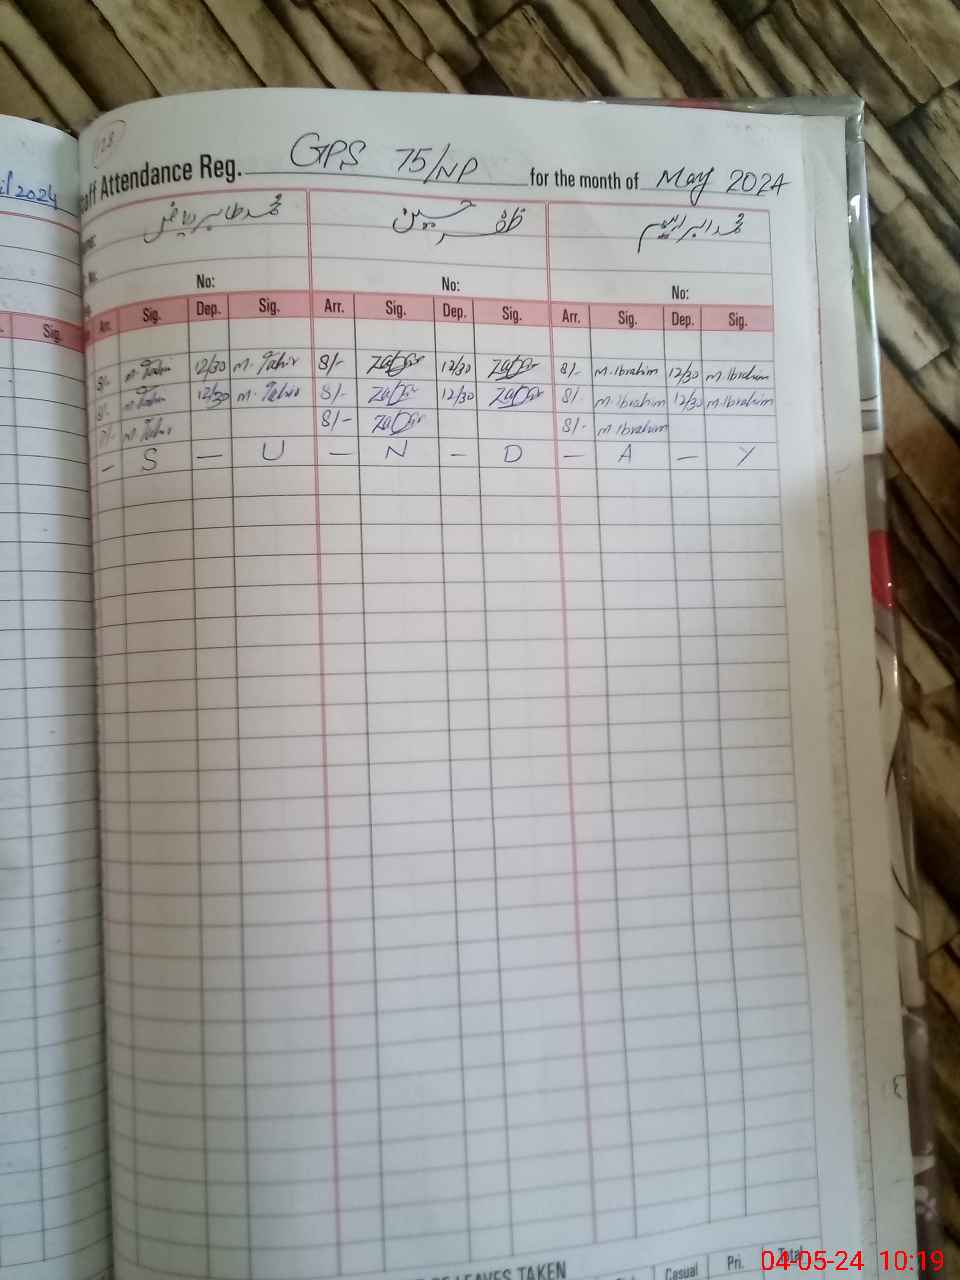 28
il 2024
aff Attendance Reg. GPS 75/NP for the month of May 2024
محمد طاہر ریاض ظفر حسین محمد ابراہیم
No: No: No:
Sig. Arr. Sig. Dep. Sig. Arr. Sig. Dep. Sig. Arr. Sig. Dep. Sig.
8/- M. Tahir 12/30 M. Tahir 8/- Zafar 12/30 Zafar 8/- M. Ibrahim 12/30 M. Ibrahim
8/- M. Tahir 12/30 M. Tahir 8/- Zafar 12/30 Zafar 8/- M. Ibrahim 12/30 M. Ibrahim
M. Tahir 8/- Zafar 8/- M. Ibrahim
— S — U — N — D — A — Y
LEAVES TAKEN Casual Pri. Total
04-05-24 10:19